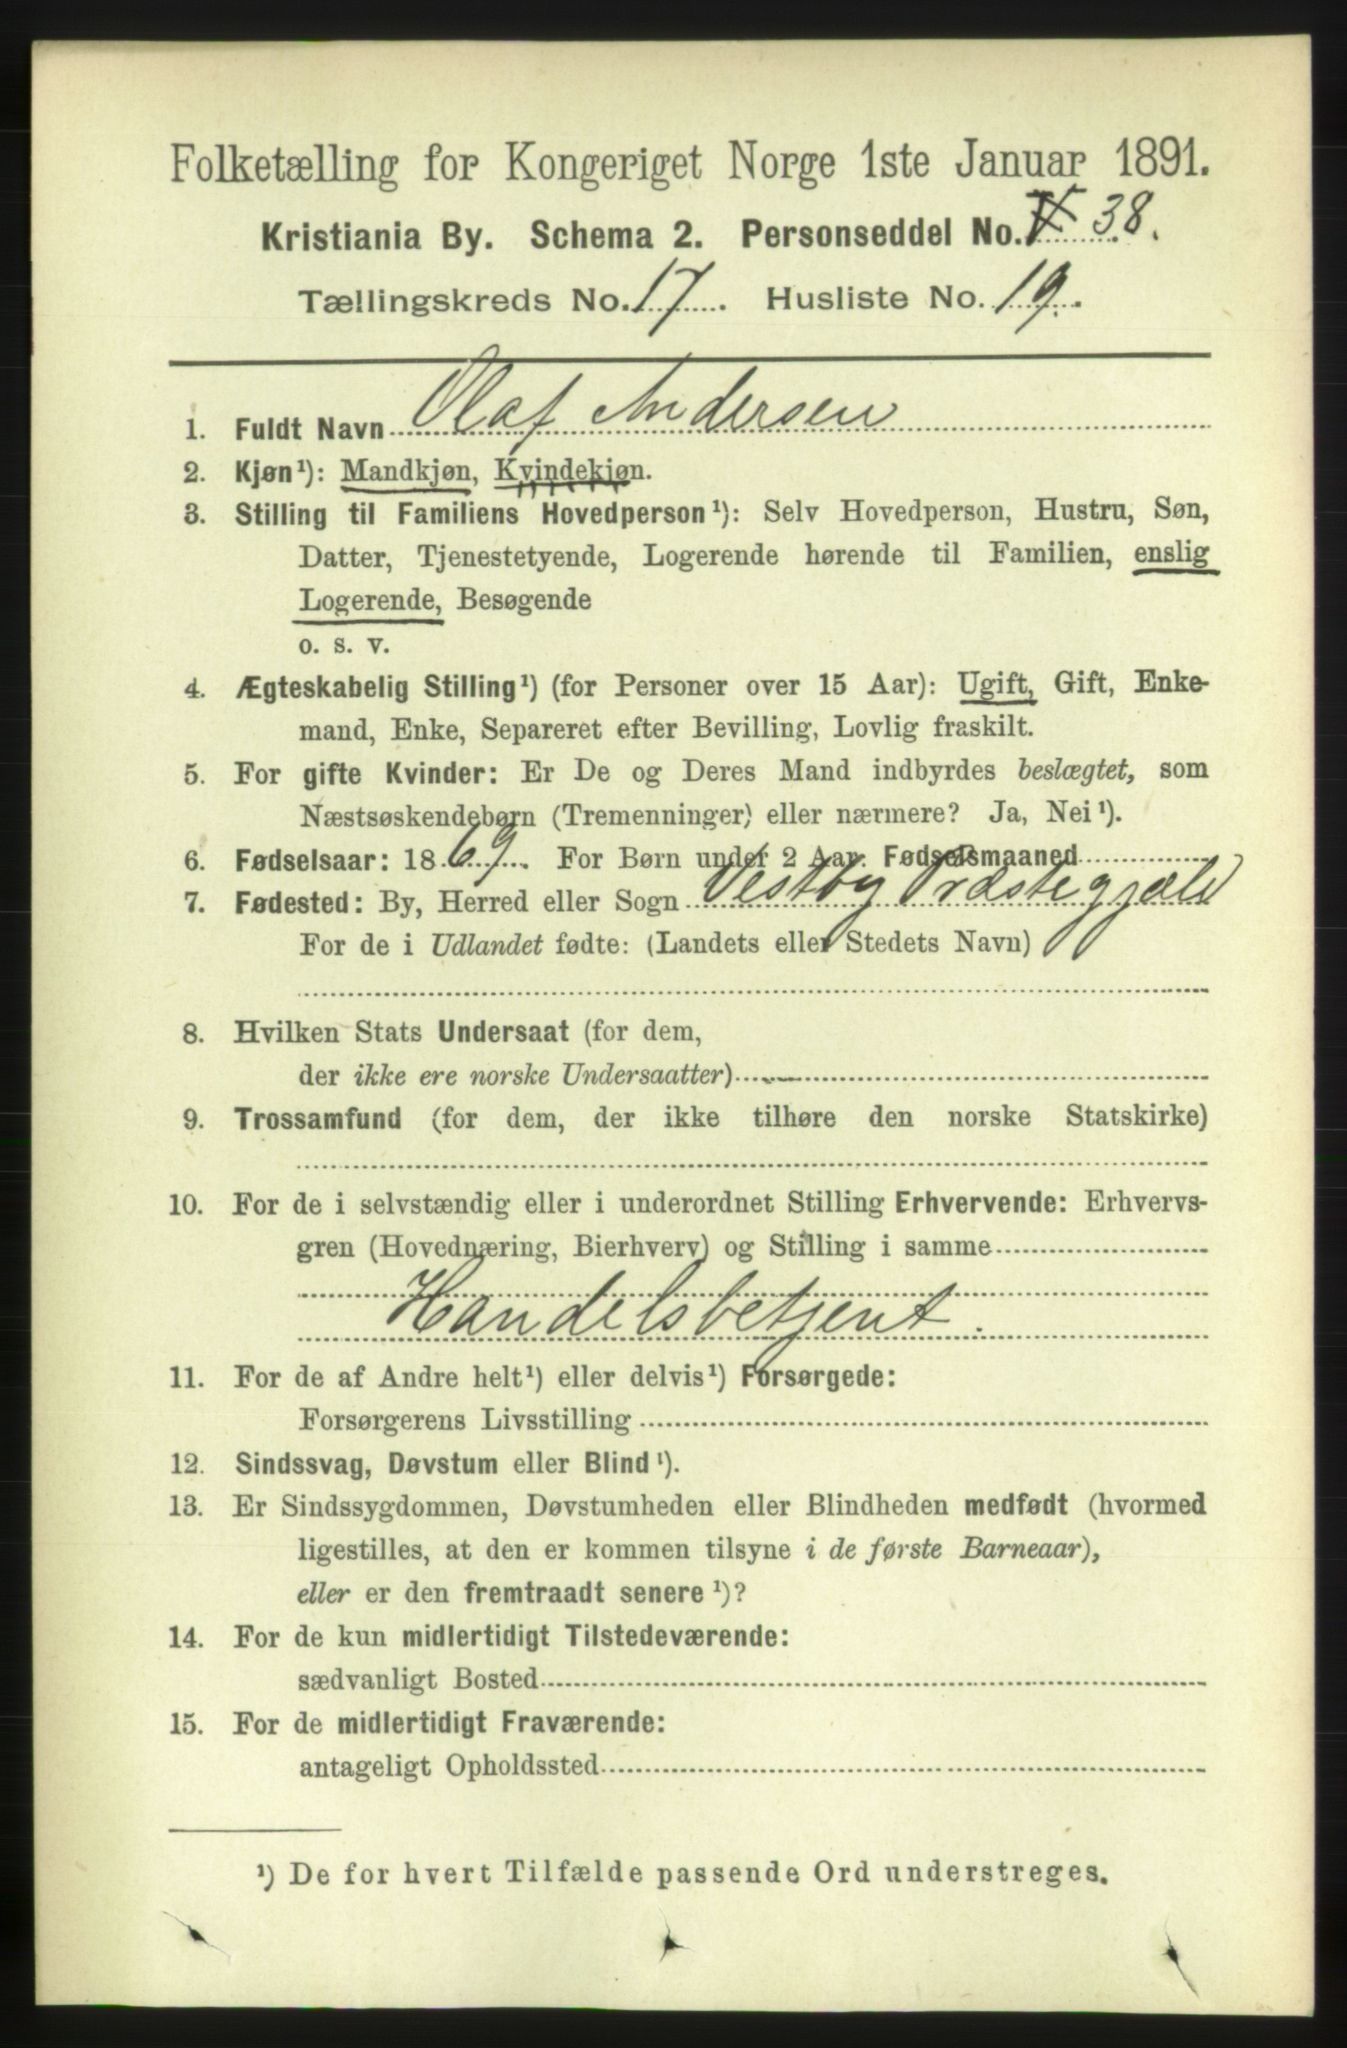 Folketælling for Kongeriget Norge 1ste Januar 1891.
Kristiania By. Schema 2. Personseddel No. 38.
Tællingskreds No. 17. Husliste No. 19.
1. Fuldt Navn Olaf Andersen
2. Kjøn¹): Mandkjøn, Kvindekjøn.
3. Stilling til Familiens Hovedperson¹): Selv Hovedperson, Hustru, Søn,
Datter, Tjenestetyende, Logerende hørende til Familien, enslig
Logerende, Besøgende
o. s. v.
4. Ægteskabelig Stilling¹) (for Personer over 15 Aar): Ugift, Gift, Enke-
mand, Enke, Separeret efter Bevilling, Lovlig fraskilt.
5. For gifte Kvinder: Er De og Deres Mand indbyrdes beslægtet, som
Næstsøskendebørn (Tremenninger) eller nærmere? Ja, Nei¹).
6. Fødselsaar: 1869. For Børn under 2 Aar. Fødselsmaaned
7. Fødested: By, Herred eller Sogn Vestby Præstegjæld
For de i Udlandet fødte: (Landets eller Stedets Navn)
8. Hvilken Stats Undersaat (for dem,
der ikke ere norske Undersaatter)
9. Trossamfund (for dem, der ikke tilhøre den norske Statskirke)
10. For de i selvstændig eller i underordnet Stilling Erhvervende: Erhvervs-
gren (Hovednæring, Bierhverv) og Stilling i samme
Handelsbetjent.
11. For de af Andre helt¹) eller delvis¹) Forsørgede:
Forsørgerens Livsstilling
12. Sindssvag, Døvstum eller Blind¹).
13. Er Sindssygdommen, Døvstumheden eller Blindheden medfødt (hvormed
ligestilles, at den er kommen tilsyne i de første Barneaar),
eller er den fremtraadt senere¹)?
14. For de kun midlertidigt Tilstedeværende:
sædvanligt Bosted
15. For de midlertidigt Fraværende:
antageligt Opholdssted
¹) De for hvert Tilfælde passende Ord understreges.